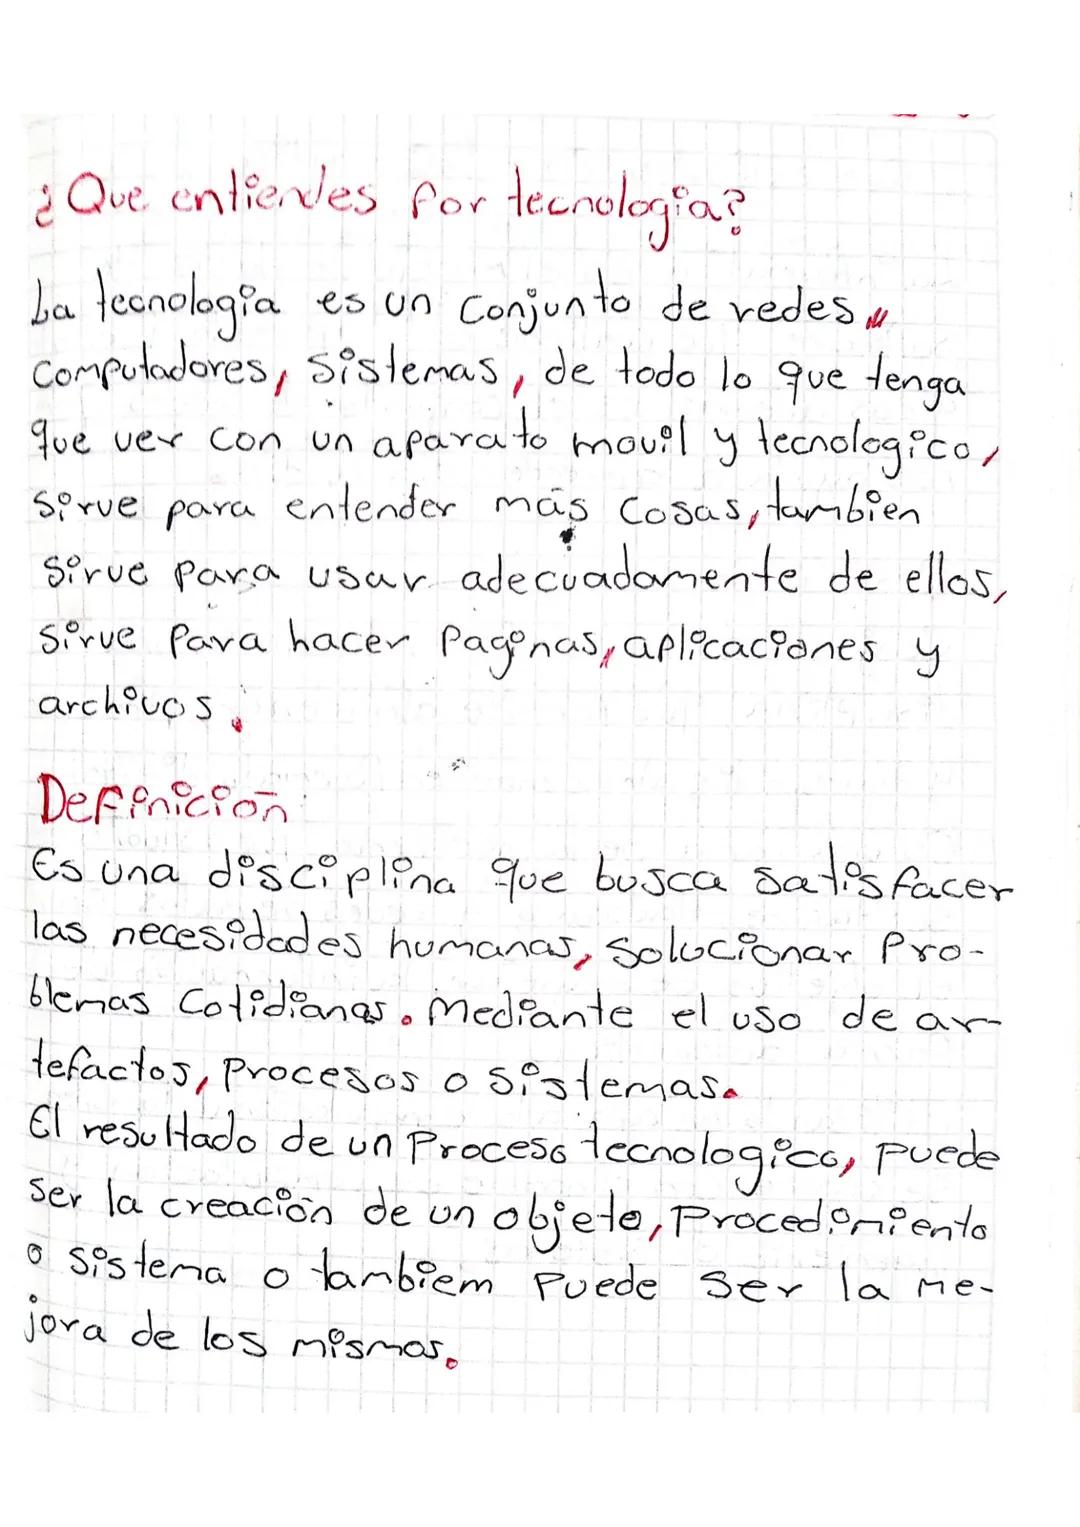 ¿Que entiendes por tecnologia?
La tecnologia es un conjunto de redes,
computadores, sistemas, de todo lo que tenga
que ver con un aparato movil y tecnologico,
sirve para entender más cosas, tambien
sirve para usar adecuadamente de ellos,
sirve para hacer paginas, aplicaciones y
archivos.
Definición
Es una disciplina que busca satisfacer
las necesidades humanas, solucionar pro-
blemas cotidianas. Mediante el uso de ar-
tefactos, procesos o sistemas.
El resultado de un proceso tecnologico, puede
ser la creación de un objeto, procedimiento
o sistema o tambiem puede ser la me-
jora de los mismos.